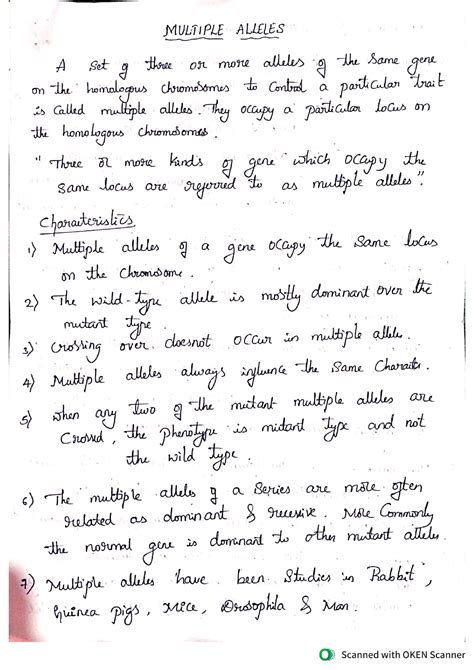 MULTIPLE ALLELES
A set of three or more alleles of the same gene
on the homologous chromosomes to control a particular trait
is called multiple alleles. They occupy a particular locus on
the homologous chromosomes.
" Three or more kinds of gene which occupy the
same locus are referred to as multiple alleles".
Characteristics
1) Multiple alleles of a gene occupy the same locus
on the chromosome.
2) The wild-type allele is mostly dominant over the
mutant type.
3) Crossing over doesnot occur in multiple alleles.
4) Multiple alleles always influence the same Character.
5) when any two of the mutant multiple alleles are
Crossed, the phenotype is mutant type and not
the wild type.
6) The multiple alleles of a series are more often
related as dominant & recessive. More Commonly
the normal gene is dominant to other mutant alleles.
7) Multiple alleles have been Studies in Rabbit,
Guinea pigs, Mice, Drosophila & Man.
Scanned with OKEN Scanner